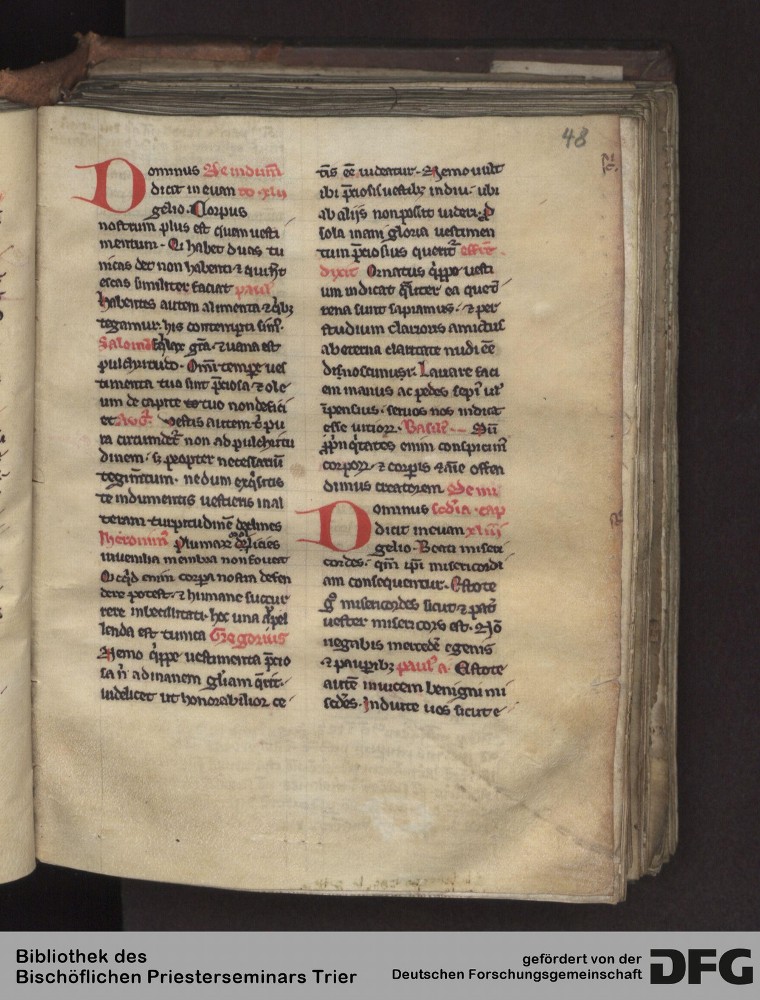 48
Dominus De indum̅
dicit in euan to · xlii
gelio · Corpus
nostrum plus est quam uesti
mentum · Qi habet duas tu
nicas det non habenti ⁊ qui h̅t
escas similiter faciat paul᷒
habentes autem alimenta ⁊ qib⁊
tegamur · his contempti sim᷒ ·
Salomō fallax gr̅a · ⁊ uana est
pulchritudo · Om̅i tempr̅e ues
timenta tua sint p̅ciosa ⁊ ole
um de capite tuo non defici
et Aug᷒ · Vestis autem ē pu
ra circumdet᷑ non ad pulchritu
dinem · s⁊ propter necessariū
tegim̅tum · ne dum exq̇sitis
te indumentis uestieris in al
teram turpitudinē declines
Iheronim᷒ Plumar᷑ delicies
iuuenilia membra non fouent
Qicq̇d enim corpora nostra defen
dere potest · ⁊ humane succur
rere imbecillitati · hoc una appel
lenda est tunica Gregorius
Nemo q̇ppe uestimenta p̅cio
sa n̅ ad inanem gl̅iam q̇rit ·
uidelicet ut honorabilior ce
t̅is ee̅ uideatur · Nemo uult
ibi p̅ciosis uestib⁊ indui · ubi
ab alijs non possit uideri · P̱
sola inani gloria uestimen
tum p̅ciosius querit᷑ effrē ·
dixit Ornatus q̇ppe uesti
um indicat q̅liter ea que t̅
rena sunt sapiamus · ⁊ per
studium clarioris amictus
ab eterna claritate nudi ee̅
dinoscimur · Lauare faci
em manus ac pedes sepi᷒ ut᷑
i̅pensius · seruos nos indicat
esse uitior᷑ · Basili᷒ · Sū
p̅pinq̇tates enim conspicim᷒
corpor᷑ · ⁊ corp̱is ⁊ an̅e offen
dimus creatorem De mi
Dominus sc̅dia · cap
dicit in euan xliii
gelio · Beati miseri
cordes · qm̅ ip̅i misericordi
am consequentur · Estote
g̊ misericordes sicut ⁊ pat᷑
uester misericors est · Nō
negabis mercedē egenis
⁊ paup̱ib⁊ paul᷒ a · Estote
autē inuicem benigni mi
sc̅des · Induite uos sicut e
Bibliothek des
Bischöflichen Priesterseminars Trier
gefördert von der
Deutschen Forschungsgemeinschaft
DFG